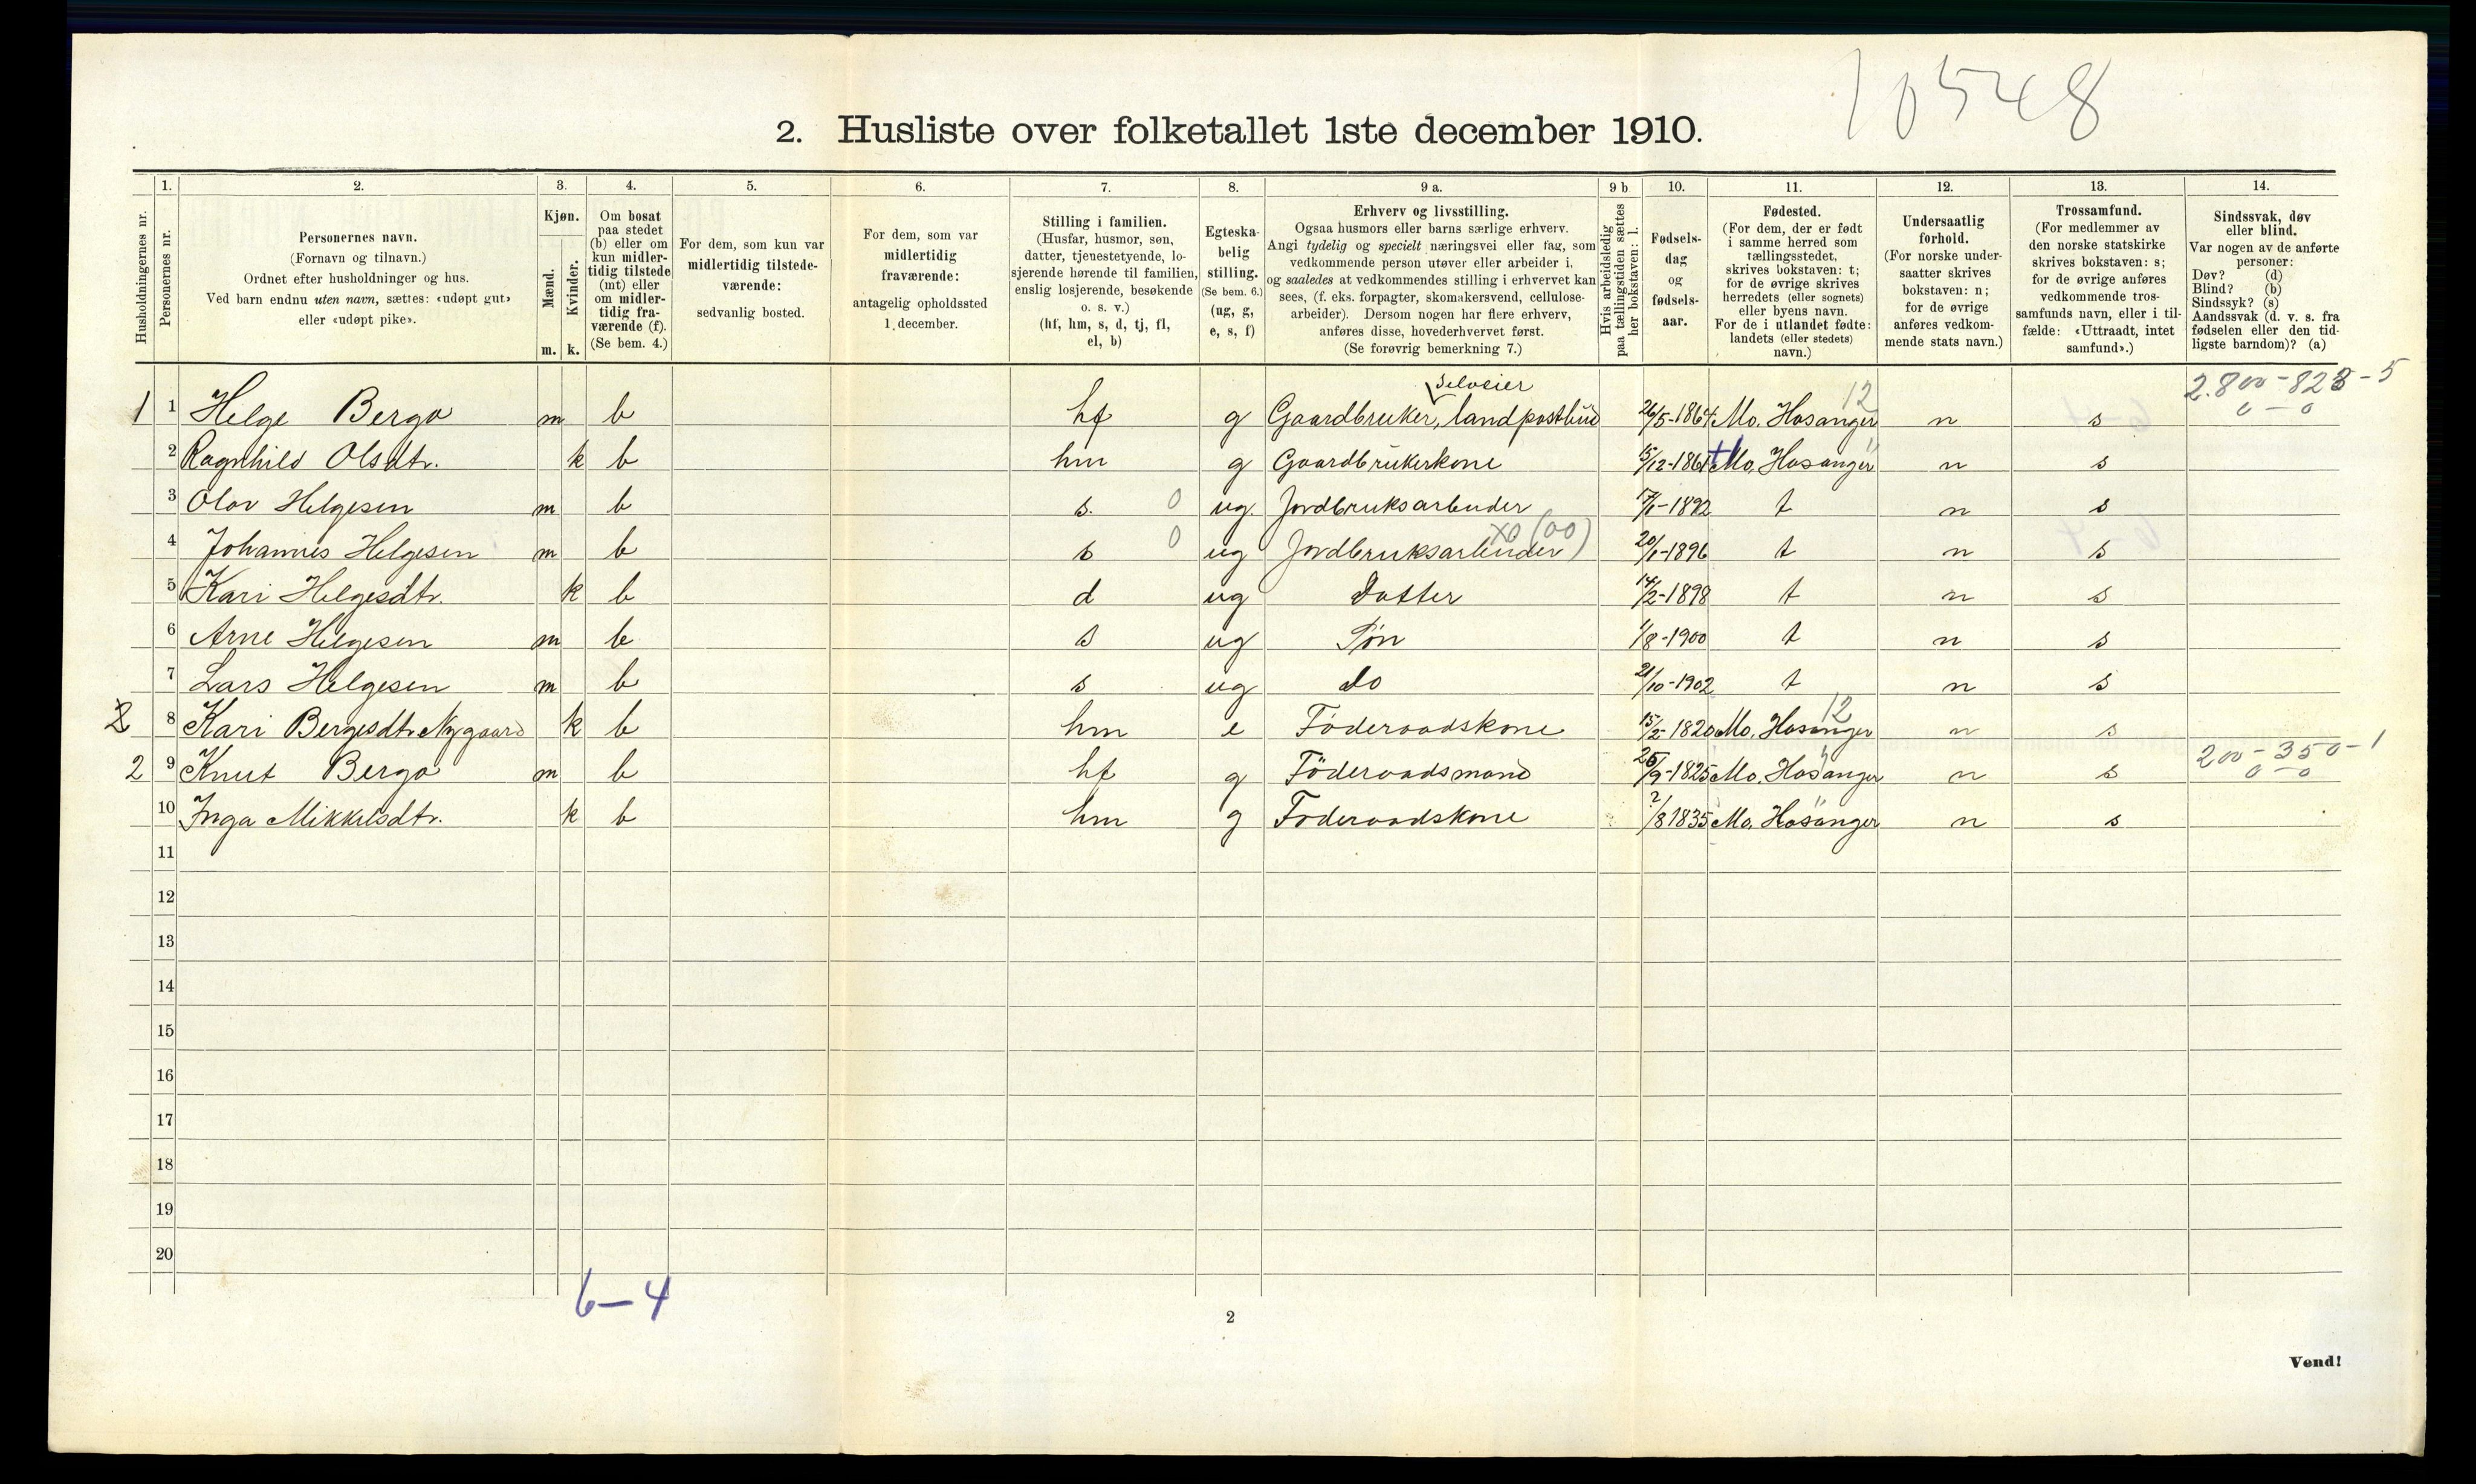 10548
2. Husliste over folketallet 1ste december 1910.
1. 2. 3. 4. 5. 6. 7. 8. 9 a. 9 b 10. 11. 12. 13. 14.
Husholdningernes nr.
Personernes nr.
Personernes navn.
(Fornavn og tilnavn.)
Ordnet efter husholdninger og hus.
Ved barn endnu uten navn, sættes: «udøpt gut»
eller «udøpt pike».
Kjøn.
Mænd.
Kvinder.
m. k.
Om bosat
paa stedet
(b) eller om
kun midler-
tidig tilstede
(mt) eller
om midler-
tidig fra-
værende (f).
(Se bem. 4.)
For dem, som kun var
midlertidig tilstede-
værende:
sedvanlig bosted.
For dem, som var
midlertidig
fraværende:
antagelig opholdssted
1. december.
Stilling i familien.
(Husfar, husmor, søn,
datter, tjenestetyende, lo-
sjerende hørende til familien,
enslig losjerende, besøkende
o. s. v.)
(hf, hm, s, d, tj, fl,
el, b)
Egteska-
belig
stilling.
(Se bem. 6.)
(ug, g,
e, s, f)
Erhverv og livsstilling.
Ogsaa husmors eller barns særlige erhverv.
Angi tydelig og specielt næringsvei eller fag, som
vedkommende person utøver eller arbeider i,
og saaledes at vedkommendes stilling i erhvervet kan
sees, (f. eks. forpagter, skomakersvend, cellulose-
arbeider). Dersom nogen har flere erhverv,
anføres disse, hovederhvervet først.
(Se forøvrig bemerkning 7.)
Hvis arbeidsledig
paa tællingstiden sættes
her bokstaven: l.
Fødsels-
dag
og
fødsels-
aar.
Fødested.
(For dem, der er født
i samme herred som
tællingsstedet,
skrives bokstaven: t;
for de øvrige skrives
herredets (eller sognets)
eller byens navn.
For de i utlandet fødte:
landets (eller stedets)
navn.)
Undersaatlig
forhold.
(For norske under-
saatter skrives
bokstaven: n;
for de øvrige
anføres vedkom-
mende stats navn.)
Trossamfund.
(For medlemmer av
den norske statskirke
skrives bokstaven: s;
for de øvrige anføres
vedkommende tros-
samfunds navn, eller i til-
fælde: «Uttraadt, intet
samfund».)
Sindssvak, døv
eller blind.
Var nogen av de anførte
personer:
Døv? (d)
Blind? (b)
Sindssyk? (s)
Aandssvak (d. v. s. fra
fødselen eller den tid-
ligste barndom)? (a)
selveier 12 2.800-823-5
1 1 Helge Bergo m b hf g Gaardbruker, landpostbud 26/5-1864 Mo. Hosanger n s 0-0
2 Ragnhild Olsdtr. k b hm g Gaardbrukerkone 15/12-1861 Mo. Hosanger n s
3 Olav Helgesen m b s. 0 ug. Jordbruksarbeider 17/1-1892 t n s
4 Johannes Helgesen m b s 0 ug Jordbruksarbeider X0 (00) 20/1-1896 t n s
5 Kari Helgesdtr. k b d ug Datter 14/2-1898 t n s
6 Arne Helgesen m b s ug Søn 1/8-1900 t n s
7 Lars Helgesen m b s ug do 21/10-1902 t n s
2 8 Kari Bergesdtr Nygaard k b hm e Föderaadskone 15/2-1820 Mo. Hosanger 12 n s
2 9 Knut Bergo m b hf g Föderaadsmand 26/9-1825 Mo. Hosanger n s 200-350-1
0-0
10 Inga Mikkelsdtr. k b hm g Foderaadskone ?/8 1835 Mo. Hosanger n s
11
12
13
14
15
16
17
18
19
20
6-4
2
Vend!